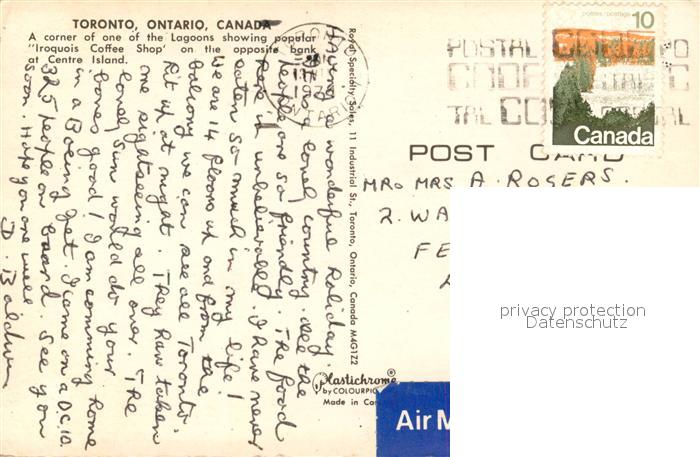 TORONTO, ONTARIO, CANADA
A corner of one of the Lagoons showing popular
"Iroquois Coffee Shop' on the opposite bank
at Centre Island.
Having a wonderful holiday.
lovely country. All the
people are so friendly. The food
here is unbelievable. I have never
eaten so much in my life!
We are 14 floors up and from the
balcony we can see all Toronto
lit up at night. They have taken
me sightseeing all over. The
lovely sun would do your
bones good! I am comming home
in a Boeing Jet. I came on a D.C.10.
325 people on board. See you
soon. Hope you are well
D. Baldwin
Royal Specialty Sales, 11 Industrial St., Toronto, Ontario, Canada M4G1Z2
Plastichrome®
by COLOURPIC
Made in Can
POSTAL
10
postes/postage
Canada
POST CARD
MR & MRS A. ROGERS.
2. WA
FE
Air M
privacy protection
Datenschutz